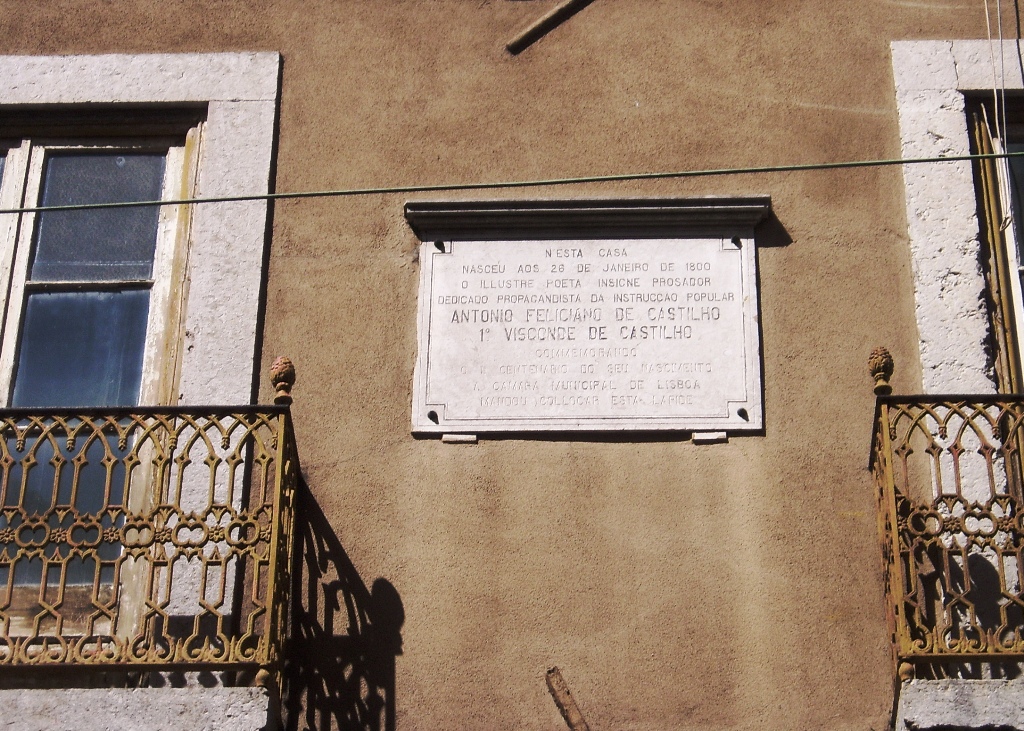 N'ESTA CASA
NASCEU AOS 26 DE JANEIRO DE 1800
O ILLUSTRE POETA INSIGNE PROSADOR
DEDICADO PROPAGANDISTA DA INSTRUCCAO POPULAR
ANTONIO FELICIANO DE CASTILHO
1º VISCONDE DE CASTILHO
COMMEMORANDO
CENTENARIO DO SEU NASCIMENTO
A CAMARA MUNICIPAL DE LISBOA
MANDOU COLLOCAR ESTA LAPIDE